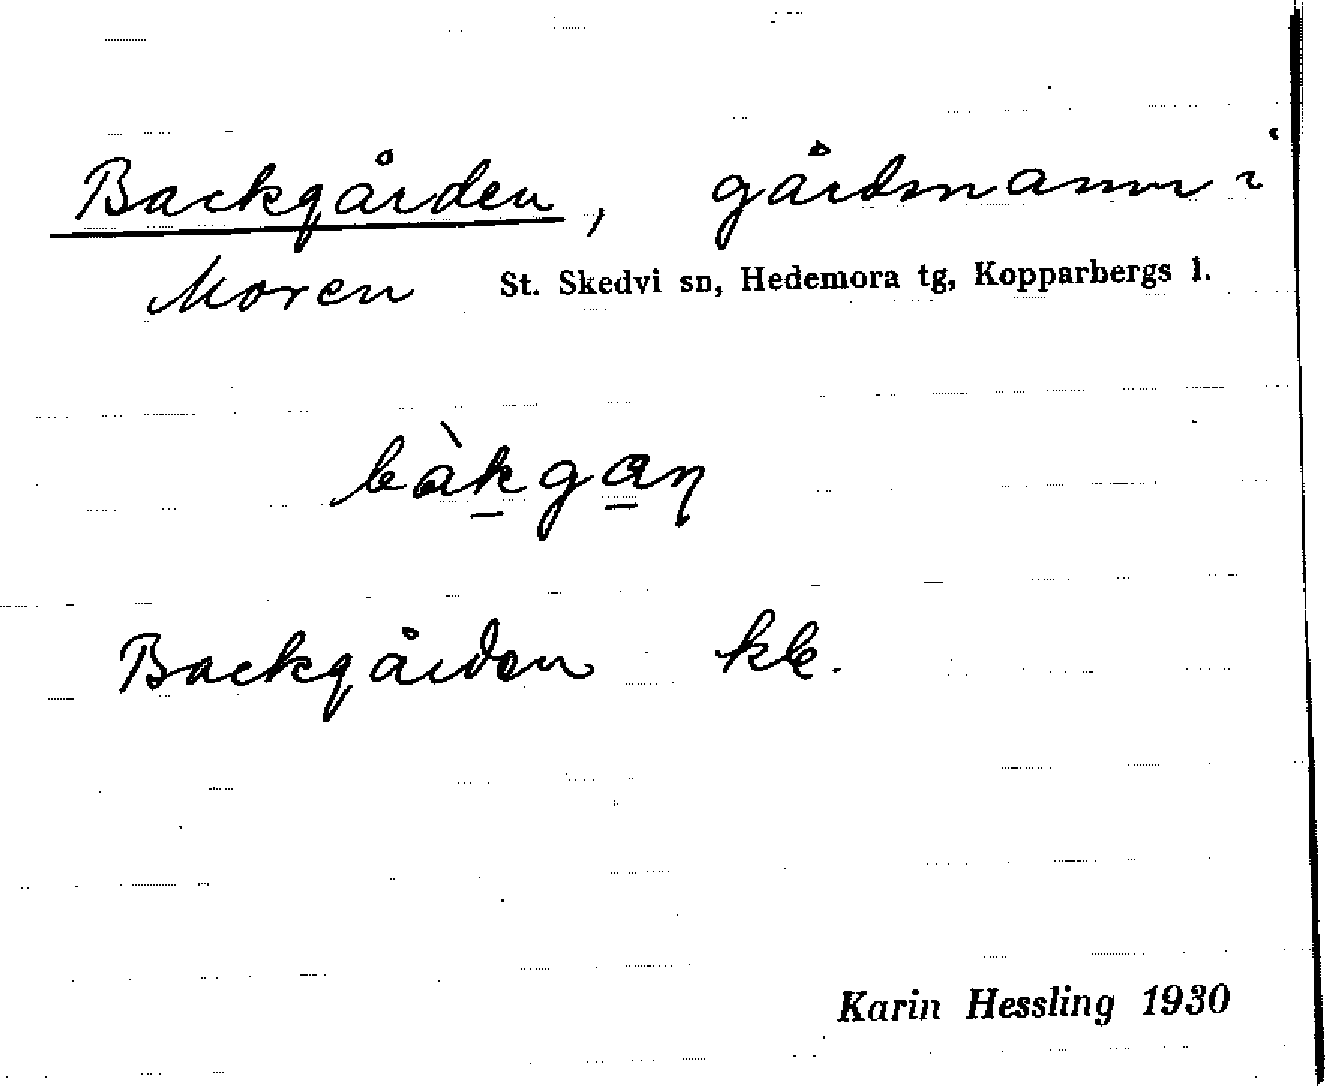 Backgården, gårdsnamn i
Moren St. Skedvi sn, Hedemora tg, Kopparbergs l.
bàk̲ga̲ɳ
Backgården kk.
Karin Hessling 1930